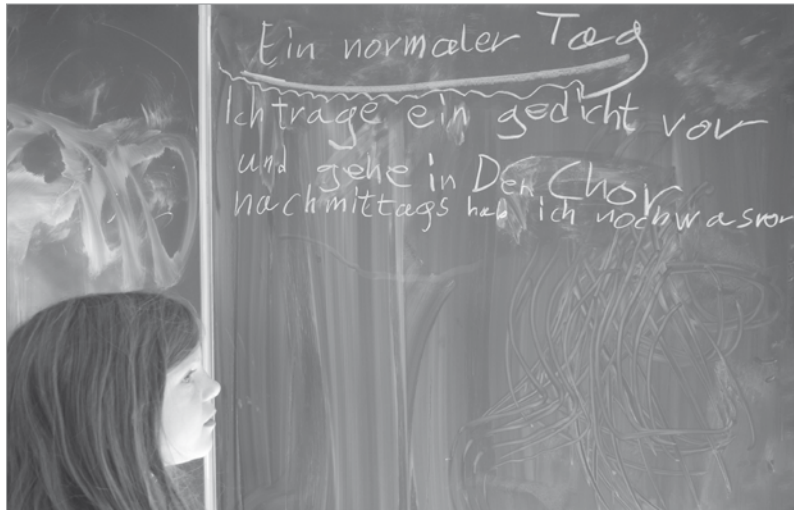 Ein normaler Tag
Ich trage ein gedicht vor
und gehe in Den Chor
nachmittags hab ich noch was vor